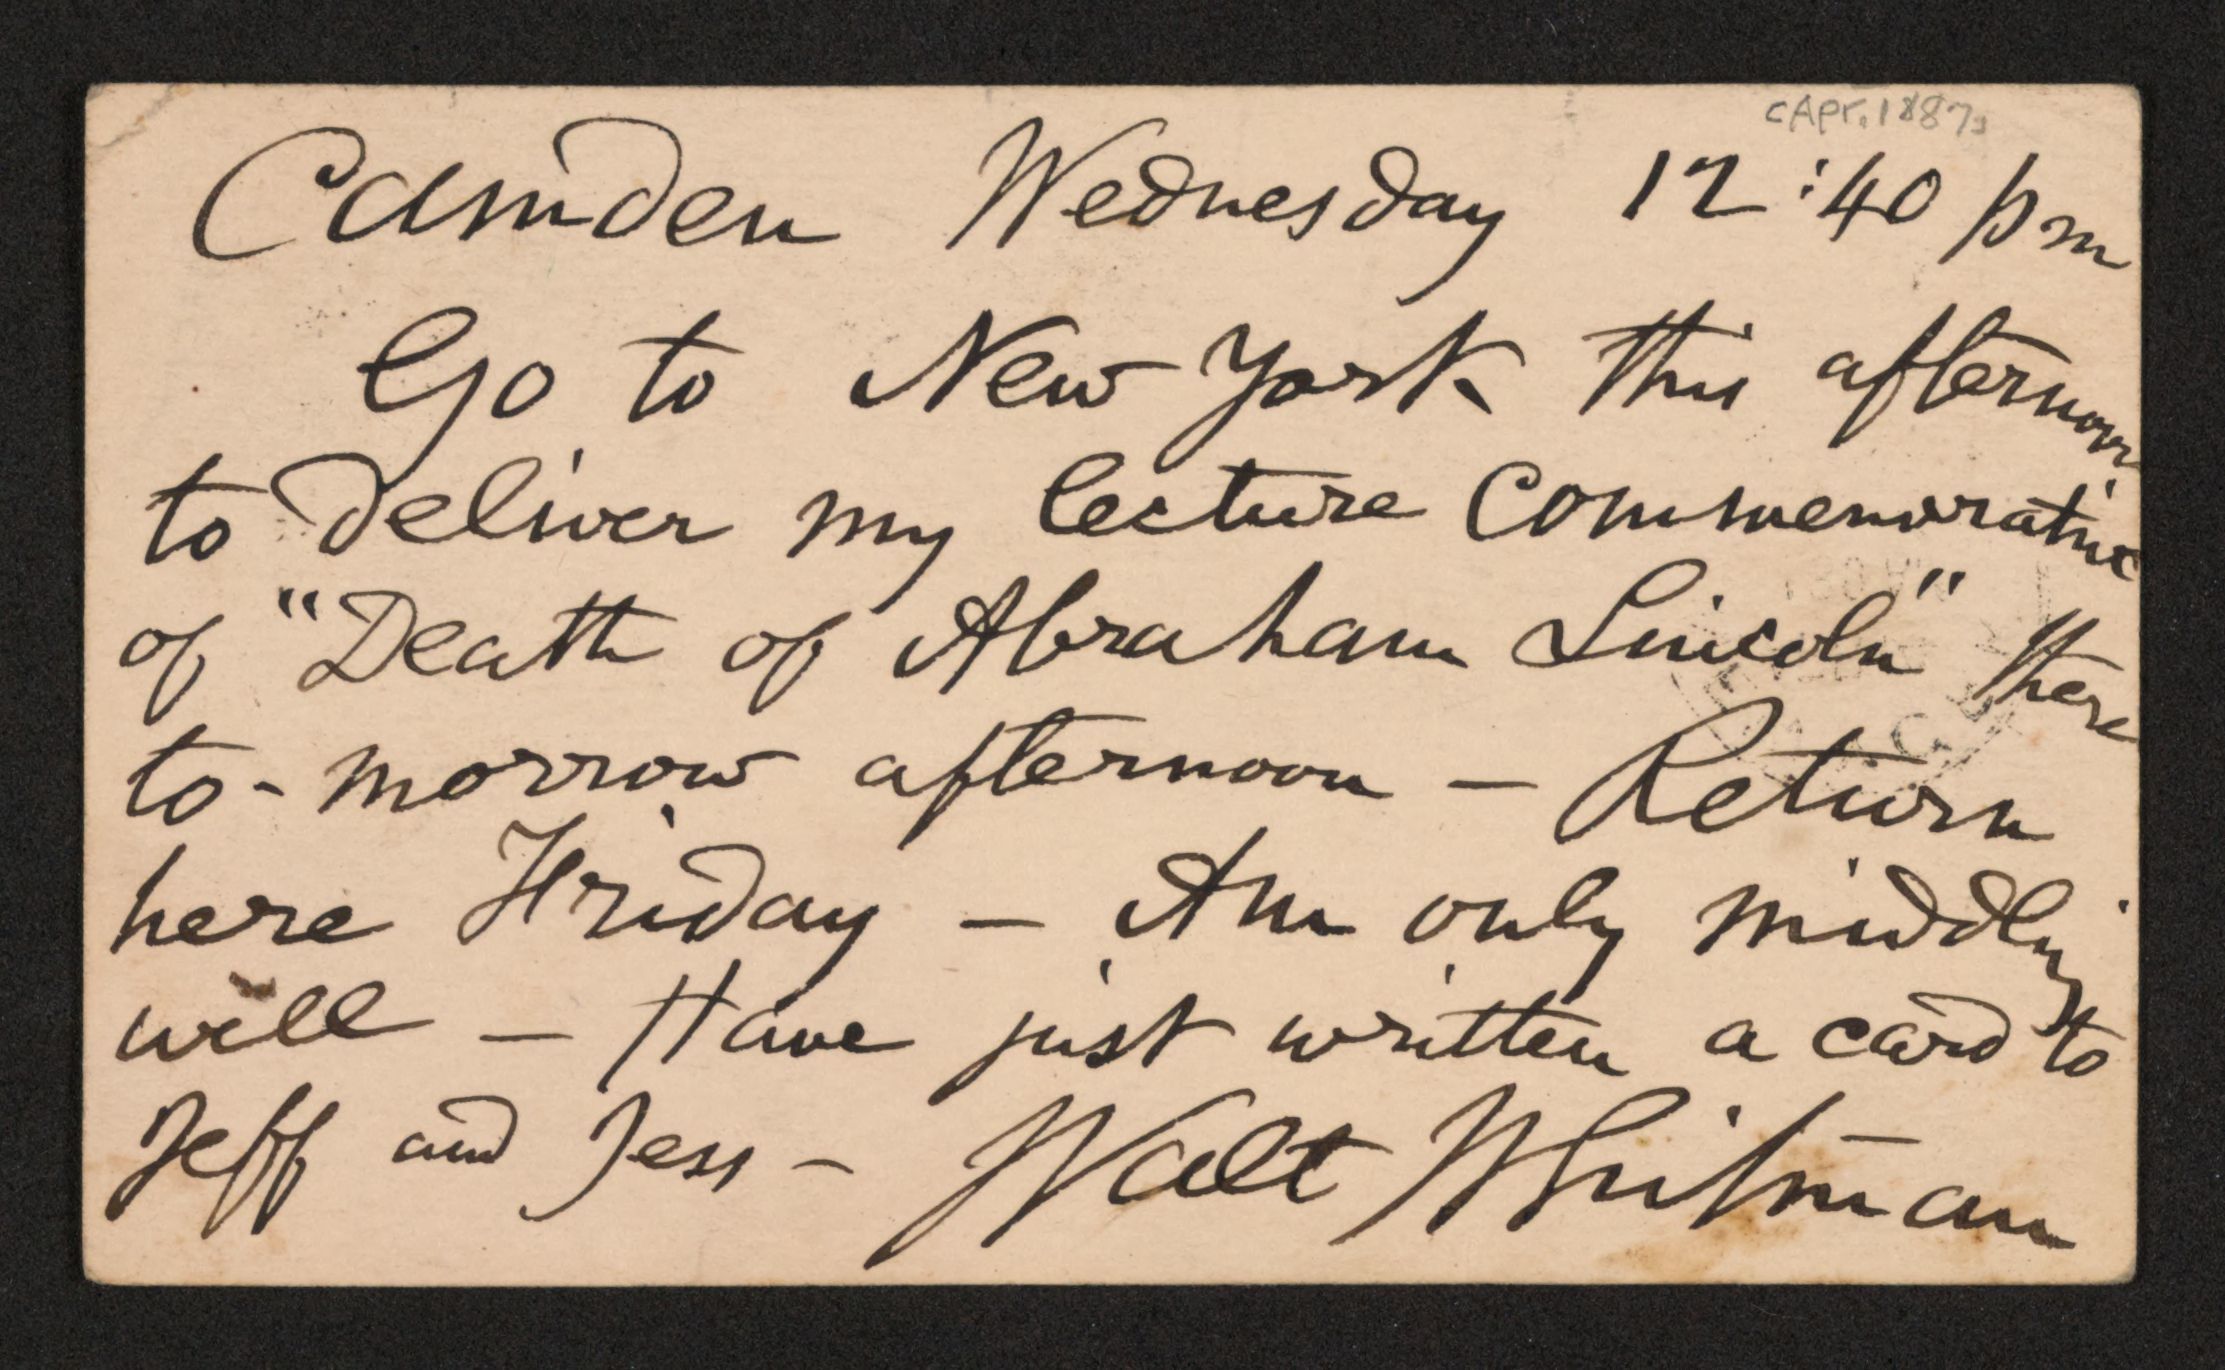 [Apr. 1887]
Camden Wednesday 12:40 pm
Go to New York this afternoon
to deliver my lecture commemorative
of "Death of Abraham Lincoln" there
to-morrow afternoon — Return
here Friday — Am only middling
well — Have just written a card to
Jeff and Jess — Walt Whitman